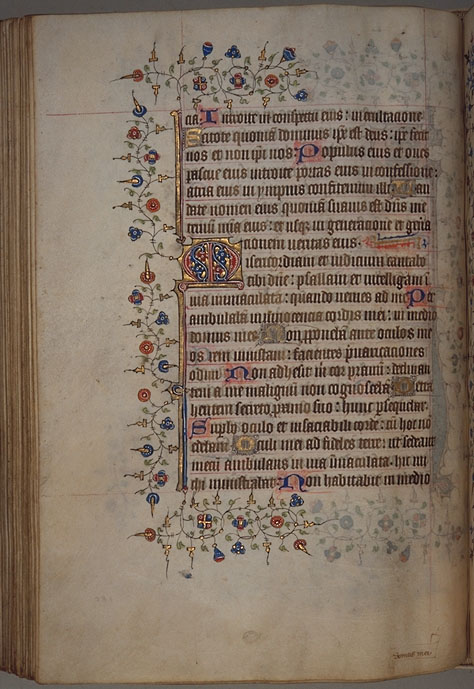 cia. Introite in conspectu eius: in exultacione
Scitote quoniā dominus ip̄e est deus: ip̄e fecit
nos et non ip̄i nos. Populus eius et oues
pascue eius introite portas eius in confessione:
atria eius in ympnis confitemini illi. Lau
date nomen eius quoniā suauis est dn̄s in e
ternū mīa eius: et usq; in generatione et gn̄ia
tionem ueritas eius.
Misericordiam et iudicium cantabo
tibi dn̄e: psallam et intelligam ī
uia immaculata: quando uenies ad me. Per
ambulabā in innocentia cordis mei: in medio
domus mee. Non p̄ponebā ante oculos me
os rem iniustam: facientes p̄uaricationes
odiui. Non adhesit in cor prauū: declinan
tem a me malignū non cognoscebā. Detra
hentem secreto proximo suo: hunc p̄sequebar.
Supbo oculo et insaciabili corde: cū hoc nō
edebam. Oculi mei ad fideles terre: ut sedeant
mecū ambulans in uia īmaculata. hic mi
chi ministrabat. Non habitabit in medio
domus mee